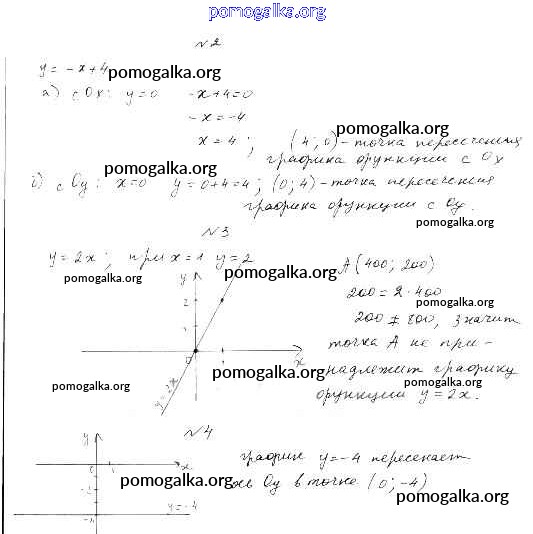 pomogalka.org
№2
y = -x+4
pomogalka.org
а) с Ox: y=0 -x+4=0
-x = -4
x = 4; (4; 0) - точка пересечения
pomogalka.org
графика функции с Ox
pomogalka.org
б) с Oy: x=0 y=0+4=4; (0; 4) - точка пересечения
графика функции с Oy.
pomogalka.org
№3
y=2x; при x=1 y=2
pomogalka.org
pomogalka.org
A(400; 200)
y
2
1
0
x
y=2x
200 = 2·400
pomogalka.org
200 ≠ 800, значит
точка A не при-
надлежит графику
pomogalka.org
pomogalka.org
pomogalka.org
функции y=2x.
№4
график y=-4 пересекает
ось Oy в точке (0; -4)
pomogalka.org
pomogalka.org
y
0
1
x
y=-4
-4